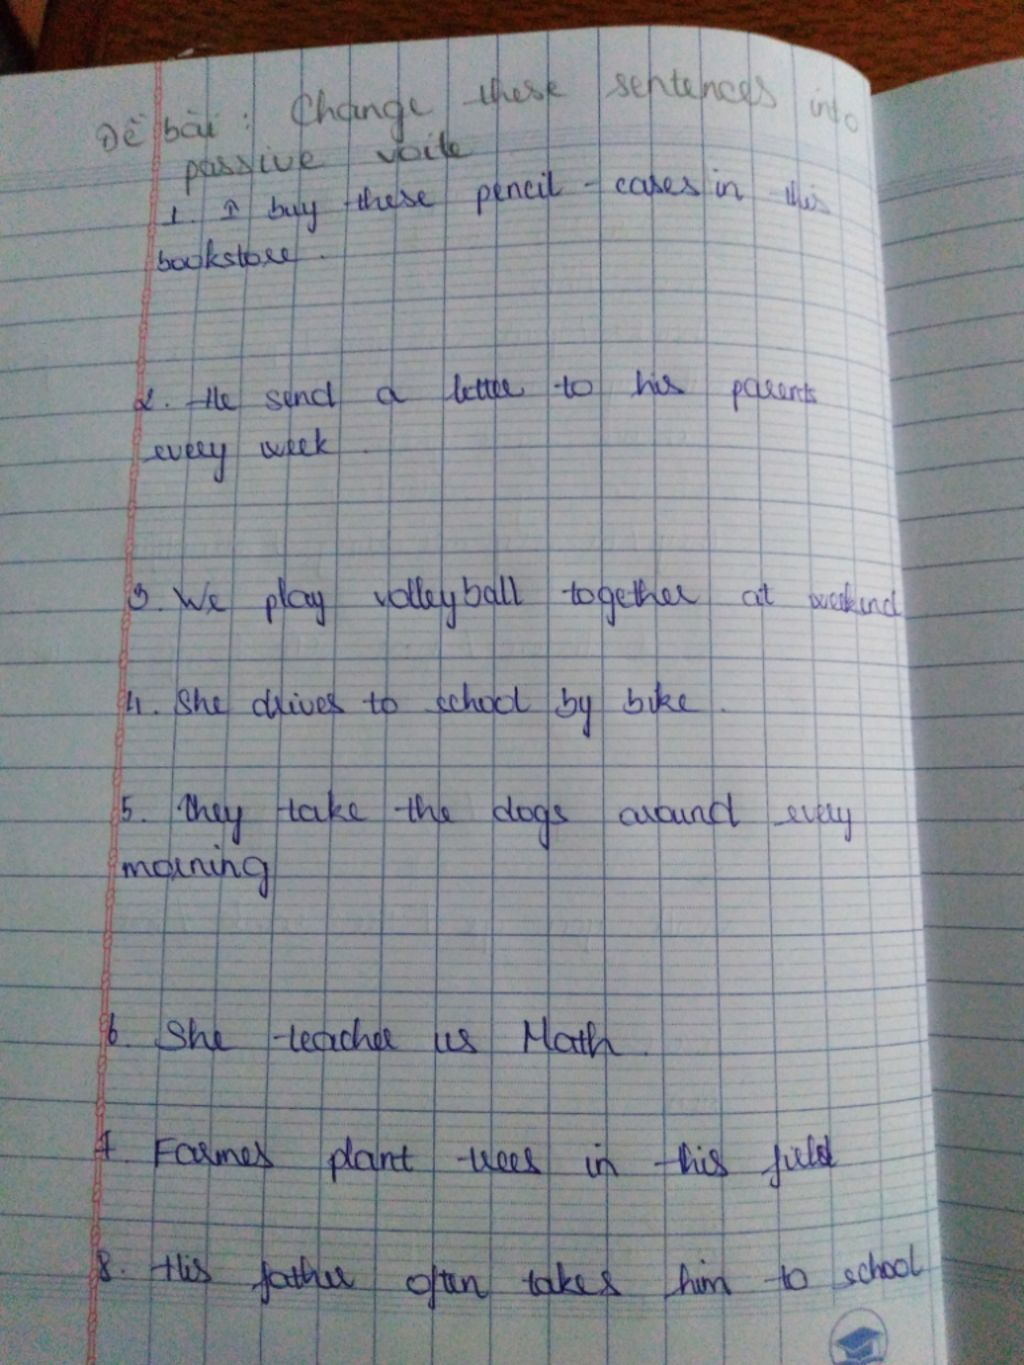 Đề bài : Change these sentences into
passive voice
1. I buy these pencil - cases in this
bookstore .
2. He send a letter to his parents
every week .
3. We play volleyball together at weekend
4. She drives to school by bike .
5. They take the dogs around every
morning
6. She teacher us Math .
7. Farmes plant trees in this field
8. His father often takes him to school